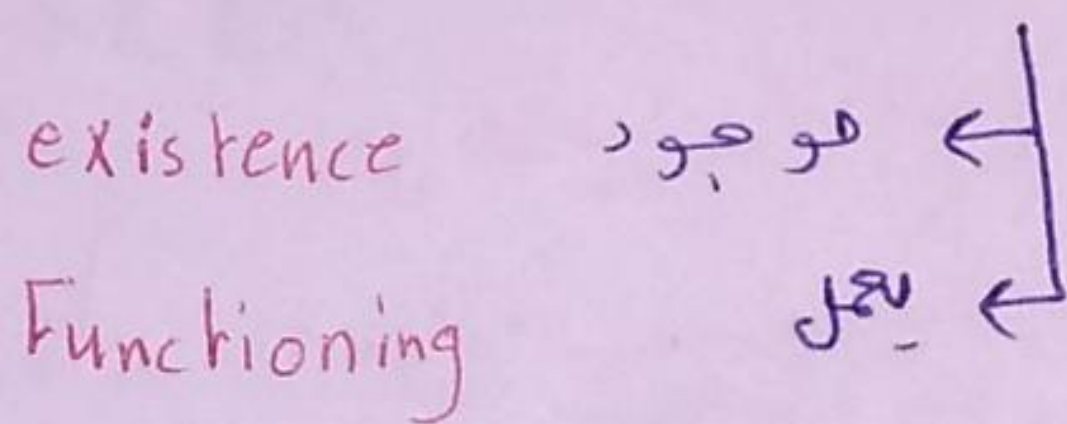 existence موجود
Functioning يعمل